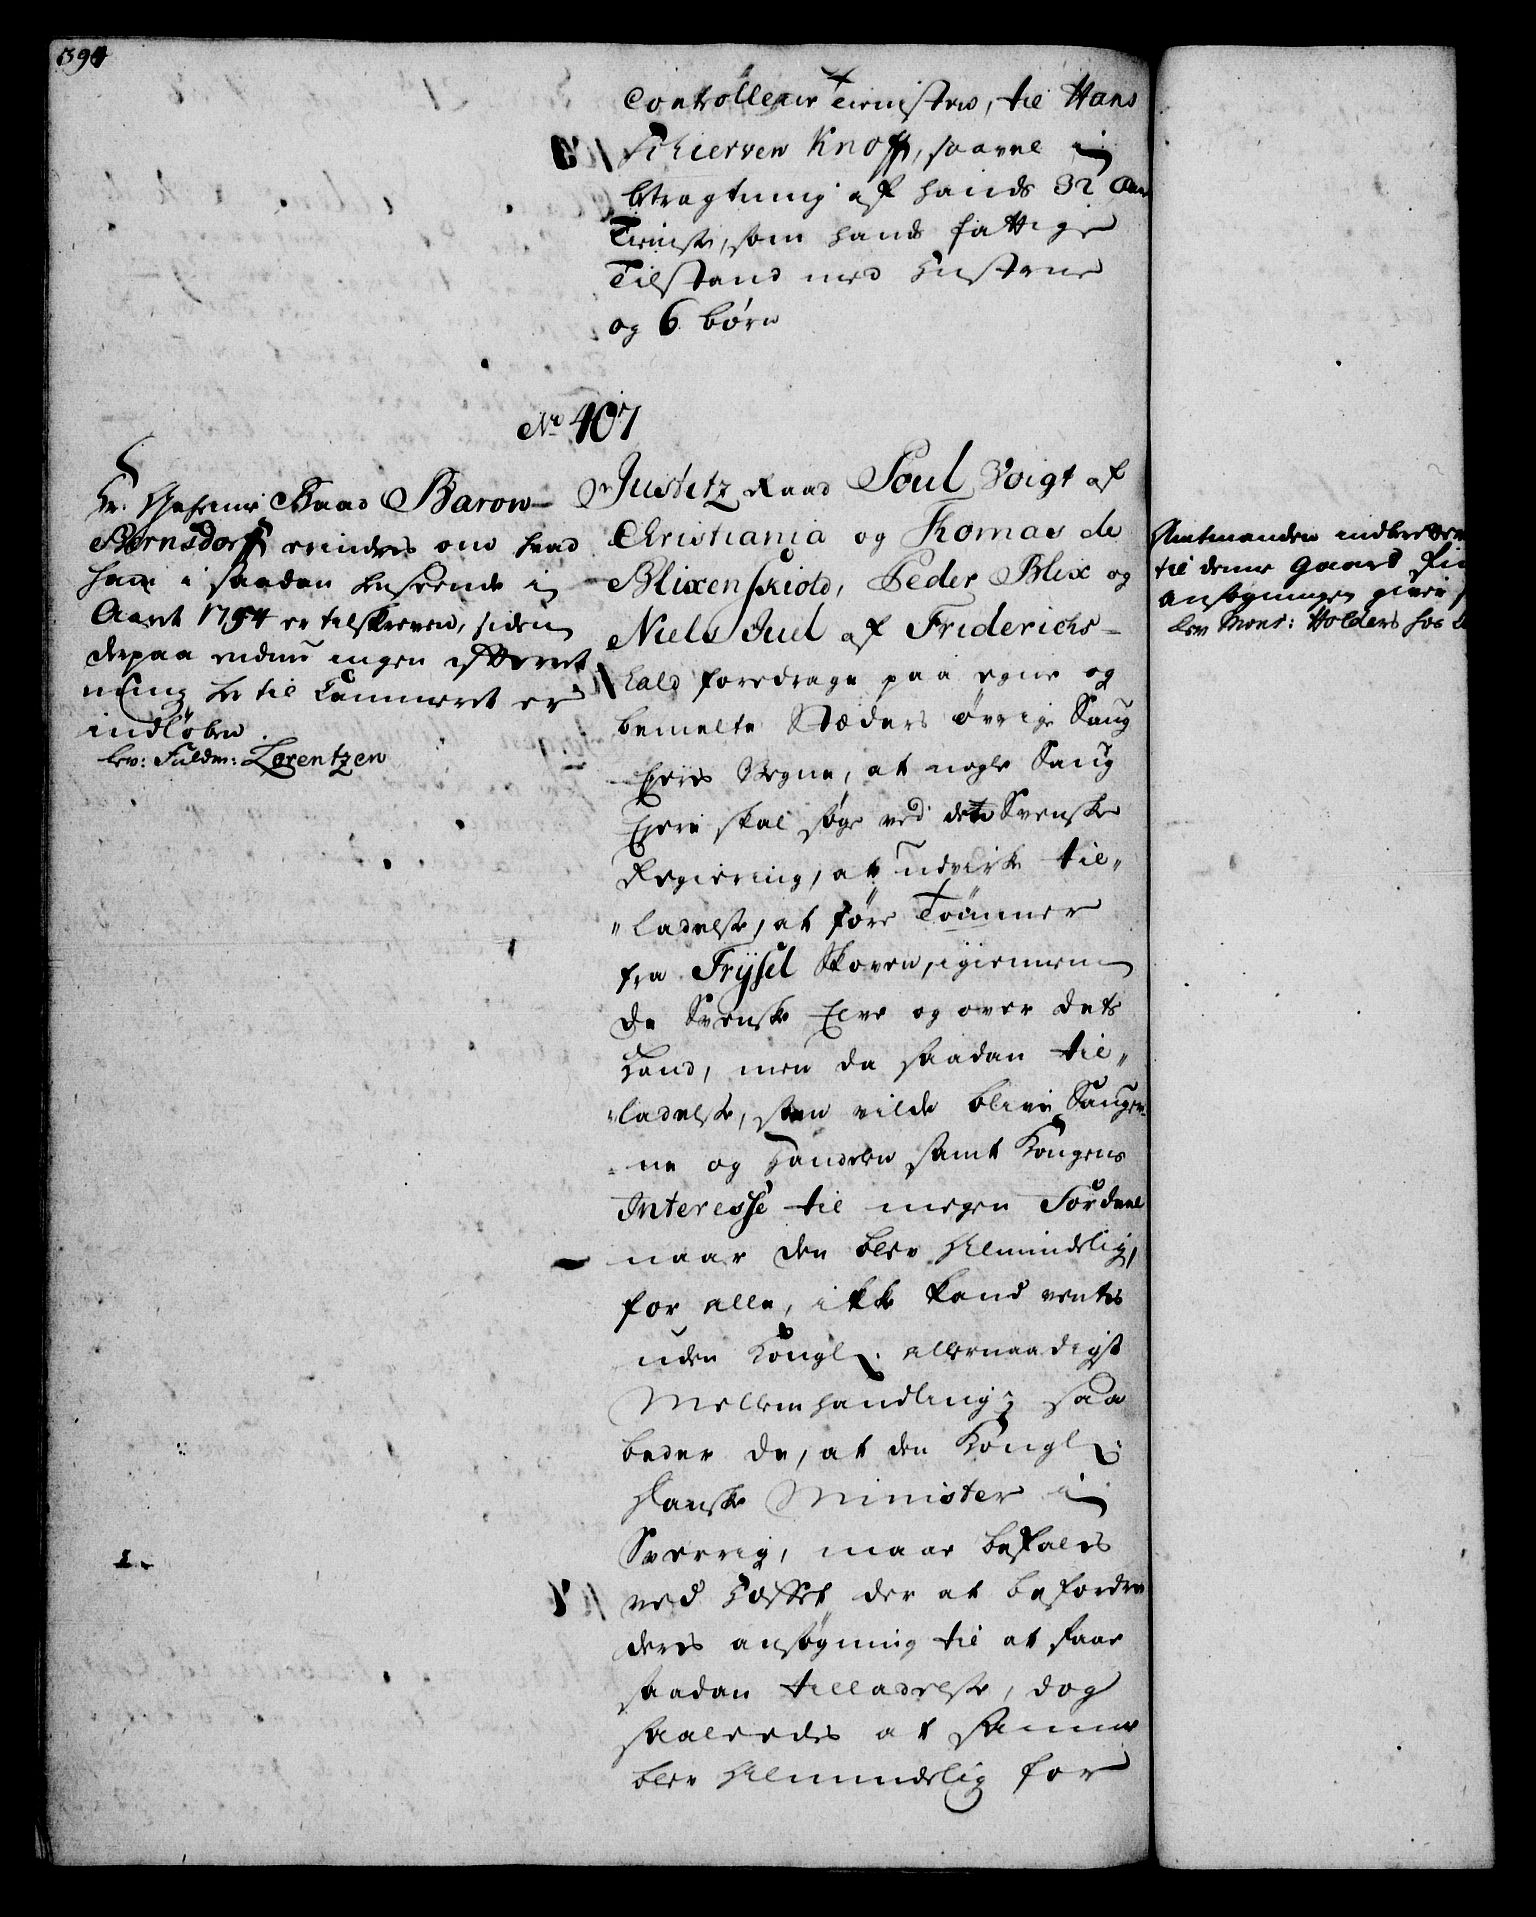 394
Controlleur Tienisten, til Hans
Schierven Knoff, saavel i
betragtning af hands 32 Aars
Tieniste, som hands fattige
Tilstand med Hustrue
og 6 børn
No 407
Hr. Geheime Raad Baron
Bernsdorff erindres om hvad
ham i saadan henseende i
Aaret 1754 er tilskreven, siden
derpaa endnu ingen efterret
ning her til Cammeret er
indløben.
lev: Fuldm: Lorentzen
Justitz Raad Poul Voigt af
Christiania og Thomas de
Blixenskiold, Peder Blix og
Niels Juel af Friderichs-
hald foredrage paa egne og
bemelte Stæders øvrige Saug
Eyeres Vegne, at nogle Saug
Eyere skal søge ved det Svenske
Regiering, at udvirke til„
„ladelse, at føre Tømmer
fra Trysil Skoven, igiennem
de Svenske Elve og over dets
Land, men da saadan til„
„ladelse, som vilde blive Sauger-
ne og Handelen samt Kongens
Interesse til megen Fordeel
naar den blev Almindelig,
for alle, ikke kand ventes
uden Kongl. allernaadigst
Mellemhandling; saa
beder de, at den Kongl.
Danske Minister i
Sverrig, maae befales
ved Hoffet der at befordre
deres ansøgning til at faae
saadan tilladelse, dog
saaledes at samme
blev Almindelig for
Amtmanden indberetter
til denne Gaard
ansøgningen giver
lev Mons: Holders hos